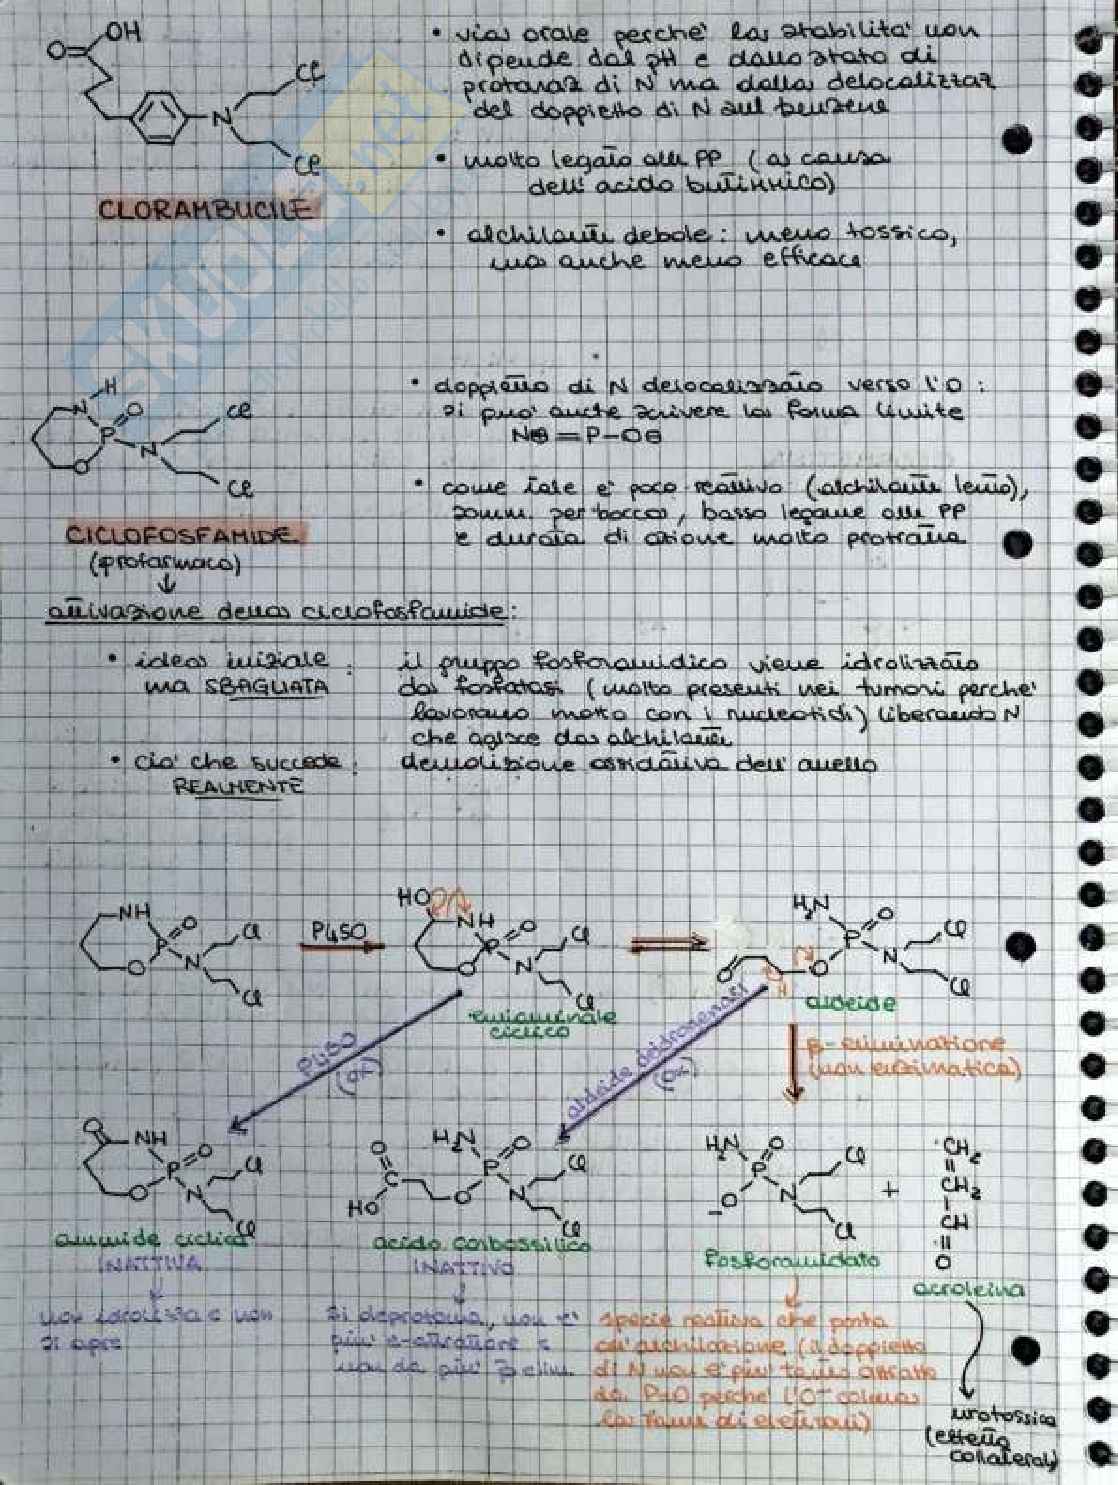 OH
O
Cl
N
Cl
CLORAMBUCILE
• via orale perche' la stabilita' non
dipende dal pH e dallo stato di
protonaz di N ma dalla delocalizzaz
del doppietto di N sul benzene
• molto legato alle PP (a causa
dell'acido butirrico)
• alchilante debole: meno tossico,
ma anche meno efficace
SKUOLA.net
H
N
O
P
Cl
N
O
Cl
CICLOFOSFAMIDE
(profarmaco)
• doppietto di N delocalizzato verso l'O:
si puo' anche scrivere la forma limite
N⊕=P-O⊖
• come tale e' poco reattivo (alchilante lento),
somm. per bocca, basso legame alle PP
e durata di azione molto protratta
attivazione della ciclofosfamide:
• idea iniziale :
ma SBAGLIATA
il gruppo fosforamidico viene idrolizzato
da fosfatasi (molto presenti nei tumori perche'
lavorano molto con i nucleotidi) liberando N
che agisce da alchilante
• cio' che succede :
REALMENTE
demolizione ossidativa dell'anello
NH
P
O
Cl
O
N
Cl
P450
HO
NH
P
O
Cl
O
N
Cl
emiaminale
ciclico
H₂N
O
P
Cl
O
O
N
H
Cl
aldeide
P450
(ox)
aldeide deidrogenasi
(ox)
β-eliminazione
(non enzimatica)
O
NH
P
O
Cl
O
N
Cl
ammide ciclica
INATTIVA
non idrolizza e non
si apre
H₂N
O
O
C
P
Cl
HO
O
N
Cl
acido carbossilico
INATTIVO
si deprotona, non e'
piu' e-attrattore e
non da piu' β elim.
H₂N
O
P
Cl
-O
N
Cl
fosforamidato
specie reattiva che porta
all'alchilazione (il doppietto
di N non e' piu' tanto attratto
da P=O perche' l'O⁻ colma
la fame di elettroni)
+
CH₂
CH₂
CH
O
acroleina
urotossica
(effetto
collaterale)